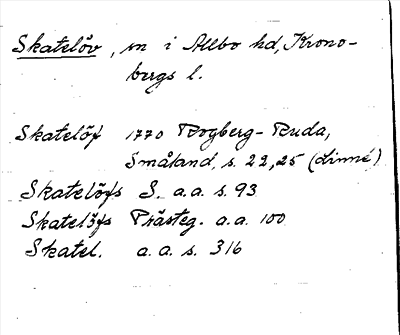 Skatelöv, sn i Allbo hd, Krono-
bergs l.
Skatelöf 1770 Rogberg-Ruda,
Småland, s. 22, 25 (dinné)
Skatelöfs S. a.a. s. 93
Skatelöfs Prästeg. a.a. 100
Skatel. a.a. s. 316